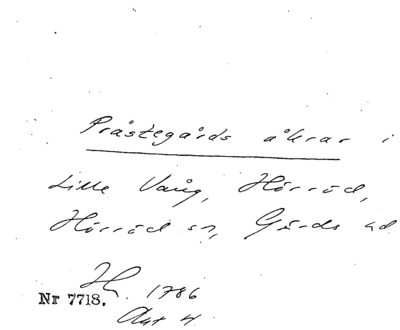 Prästegårds åkrar i
Lille Vång, Hörröd,
Hörröd sn, Gärds hd
Nr 7718. 1786
Akt 4